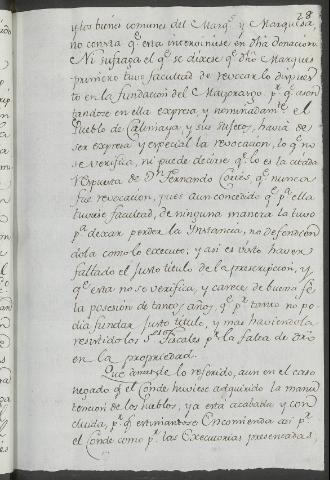 28
y los bienes comunes del Marq.s y Marquesa,
no consta q.e esta interviniese en dha donacion.
Ni sufraga el q.e se dixese q.e dho Marques
primero tuvo facultad de revocar lo dispues
to en la fundacion del Mayorazgo p.r q.e ason
tandose en ella expresa, y nominadam.te el
Pueblo de Calimaya y sus sujetos, havia de
ser expresa y especial la revocacion, lo q.e no
se verifica, ni puede decirse q.e lo es la citada
respuesta de D.n Fernando Cortés, q.e nunca
fue revocacion, pues aun concedido q.e p.a ella
tuviese facultad, de ninguna manera la tuvo
p.a dexar perder la Instancia, no defendien
dola como lo executó; y asi es visto haver
faltado el Justo titulo de la prescripcion, y
q.e esta no se verifica, y carece de buena fe
la posesion de tantos años, q.e p.r tanto no po
dia fundar Justo titulo, y mas haviendola
resistido los S.res Fiscales p.r la falta de dro
en la propiedad.
Que demas de lo referido, aun en el caso
negado q.e el Conde huviese adquirido la manu
tencion de los Pueblos, ya está acabada y con
cluida, p.r q.e estimandose Encomienda asi p.r
el Conde como p.r las Executorias presentadas,